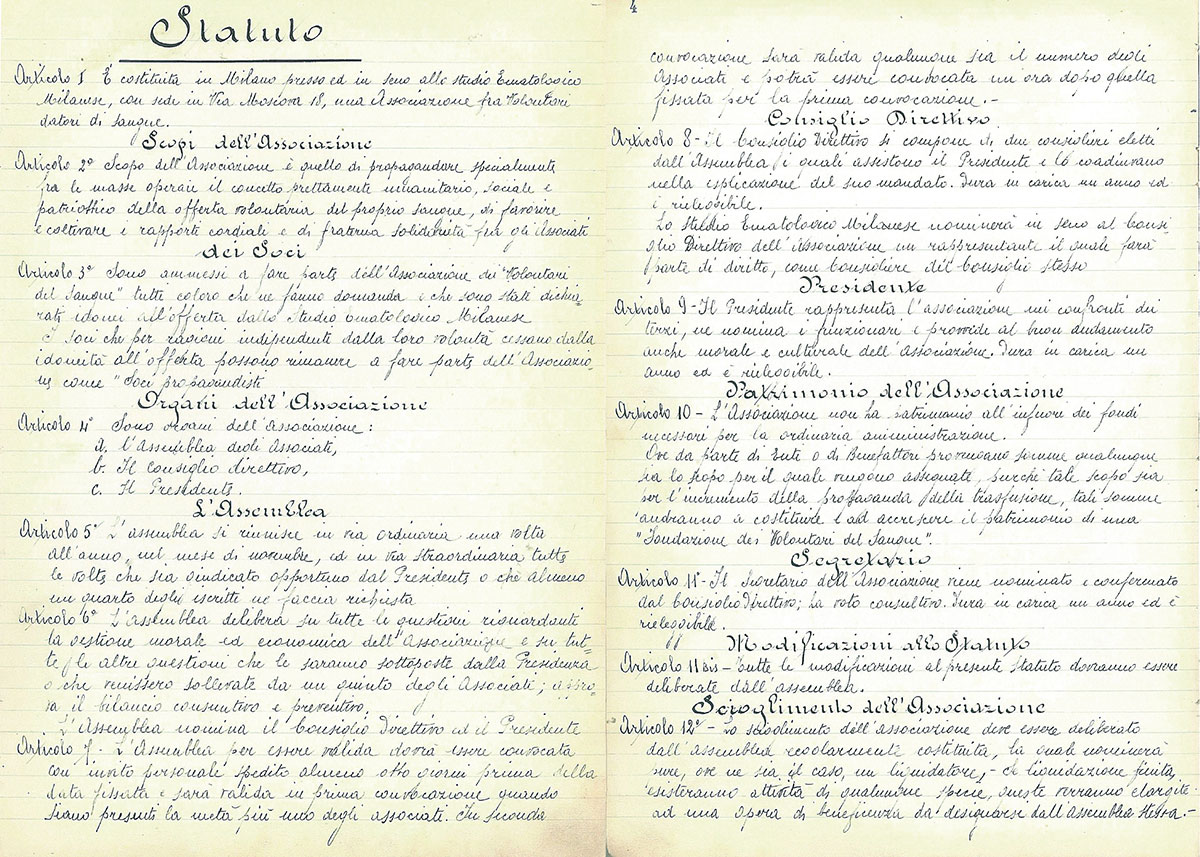 Statuto
Articolo 1 È costituita in Milano presso ed in seno allo studio Ematologico
Milanese, con sede in Via Moscova 18, una Associazione fra Volontari
datori di sangue.
Scopi dell'Associazione
Articolo 2° Scopo dell'Associazione è quello di propagandare specialmente
fra le masse operaie il concetto prettamente umanitario, sociale e
patriottico della offerta volontaria del proprio sangue, di favorire
e coltivare i rapporti cordiali e di fraterna solidarietà fra gli Associati
dei Soci
Articolo 3° Sono ammessi a fare parte dell'Associazione dei "Volontari
del Sangue" tutti coloro che ne fanno domanda e che sono stati dichia-
rati idonei all'offerta dallo Studio Ematologico Milanese
I soci che per ragioni indipendenti dalla loro volontà cessano dalla
idoneità all'offerta possono rimanere a fare parte dell'Associazio-
ne come "Soci propagandisti
Organi dell'Associazione
Articolo 4° Sono organi dell'Associazione:
a. l'Assemblea degli Associati,
b. Il Consiglio direttivo,
c. Il Presidente.
L'Assemblea
Articolo 5° L'assemblea si riunisce in via ordinaria una volta
all'anno, nel mese di novembre, ed in via straordinaria tutte
le volte che sia giudicato opportuno dal Presidente o che almeno
un quarto degli iscritti ne faccia richiesta
Articolo 6° L'Assemblea delibera su tutte le questioni riguardante
la gestione morale ed economica dell'Associazione e su tut-
te le altre questioni che le saranno sottoposte dalla Presidenza
o che venissero sollevate da un quinto degli Associati; appro-
va il bilancio consuntivo e preventivo.
L'Assemblea nomina il Consiglio Direttivo ed il Presidente
Articolo 7. L'Assemblea per essere valida dovrà essere convocata
con invito personale spedito almeno otto giorni prima della
data fissata e sarà valida in prima convocazione quando
siano presenti la metà più uno degli associati. In seconda
4
convocazione sarà valida qualunque sia il numero degli
Associati e potrà essere convocata un'ora dopo quella
fissata per la prima convocazione.-
Consiglio Direttivo
Articolo 8 - Il Consiglio Direttivo si compone di due consiglieri eletti
dall'Assemblea i quali assistono il Presidente e lo coadiuvano
nella esplicazione del suo mandato. Dura in carica un anno ed
è rieleggibile.
Lo Studio Ematologico Milanese nominerà in seno al Consi-
glio Direttivo dell'Associazione un rappresentante il quale farà
parte di diritto, come Consigliere del Consiglio stesso
Presidente
Articolo 9 - Il Presidente rappresenta l'associazione nei confronti dei
terzi, ne nomina i funzionari e provvede al buon andamento
anche morale e culturale dell'Associazione. Dura in carica un
anno ed è rieleggibile.
Patrimonio dell'Associazione
Articolo 10 - L'Associazione non ha patrimonio all'infuori dei fondi
necessari per la ordinaria amministrazione.
Ove da parte di Enti o di Benefattori provengano somme qualunque
sia lo scopo per il quale vengono assegnate, purchè tale scopo sia
per l'incremento della propaganda della trasfusione, tali somme
andranno a costituire e ad accrescere il patrimonio di una
"Fondazione dei Volontari del Sangue".
Segretario
Articolo 11° - Il Segretario dell'Associazione viene nominato e confermato
dal Consiglio Direttivo; ha voto consultivo. Dura in carica un anno ed è
rieleggibile.
Modificazioni allo Statuto
Articolo 11 bis - Tutte le modificazioni al presente Statuto dovranno essere
deliberate dall'assemblea.
Scioglimento dell'Associazione
Articolo 12° - Lo scioglimento dell'associazione deve essere deliberato
dall'assemblea regolarmente costituita, la quale nominerà
pure, ove ne sia il caso, un liquidatore,- a liquidazione finita,
esisteranno attività di qualunque specie, queste verranno elargite
ad una opera di beneficenza da designarsi dall'Assemblea stessa.-